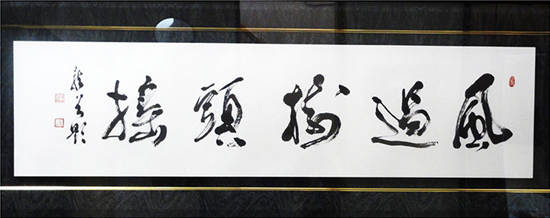 風過樹頭搖